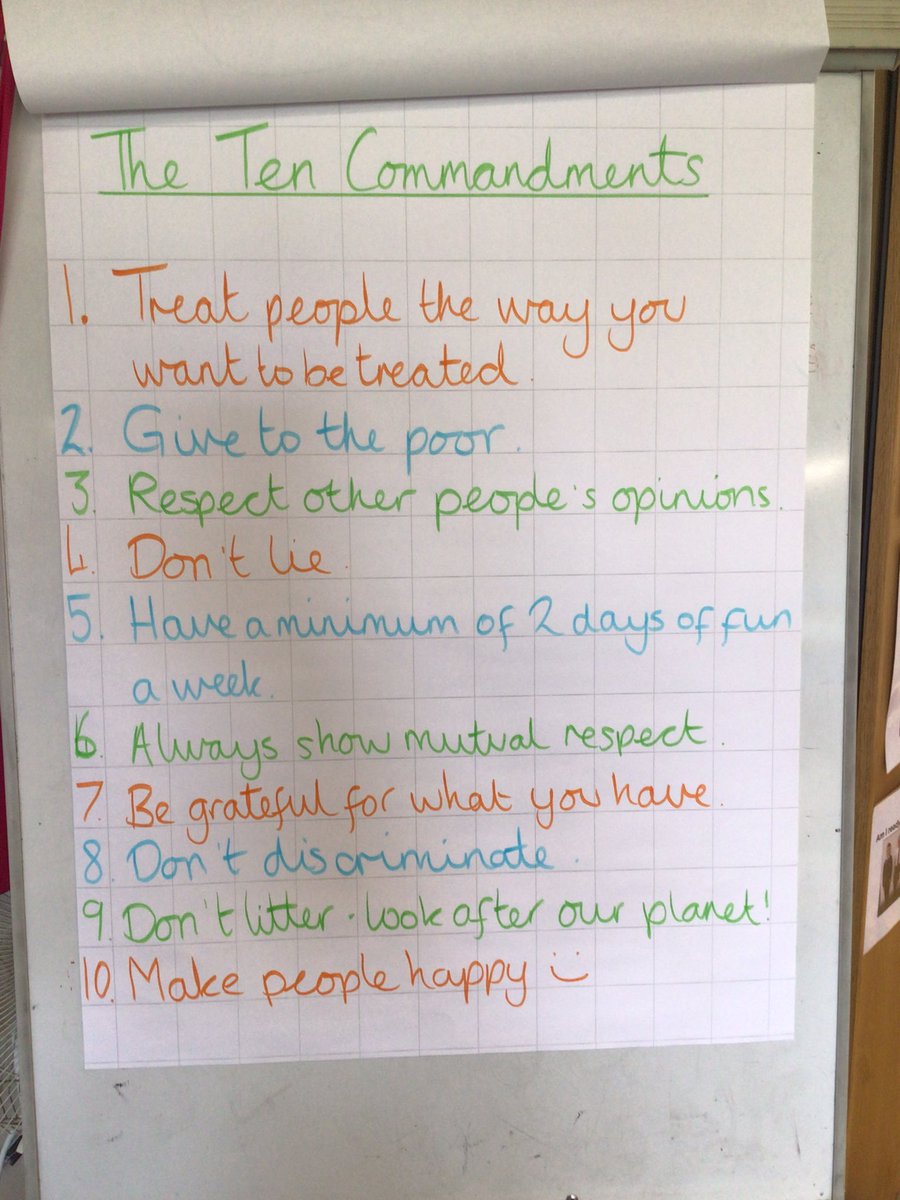 The Ten Commandments
1. Treat people the way you
want to be treated.
2. Give to the poor.
3. Respect other people's opinions.
4. Don't lie.
5. Have a minimum of 2 days of fun
a week.
6. Always show mutual respect.
7. Be grateful for what you have.
8. Don't discriminate.
9. Don't litter - look after our planet!
10. Make people happy :)